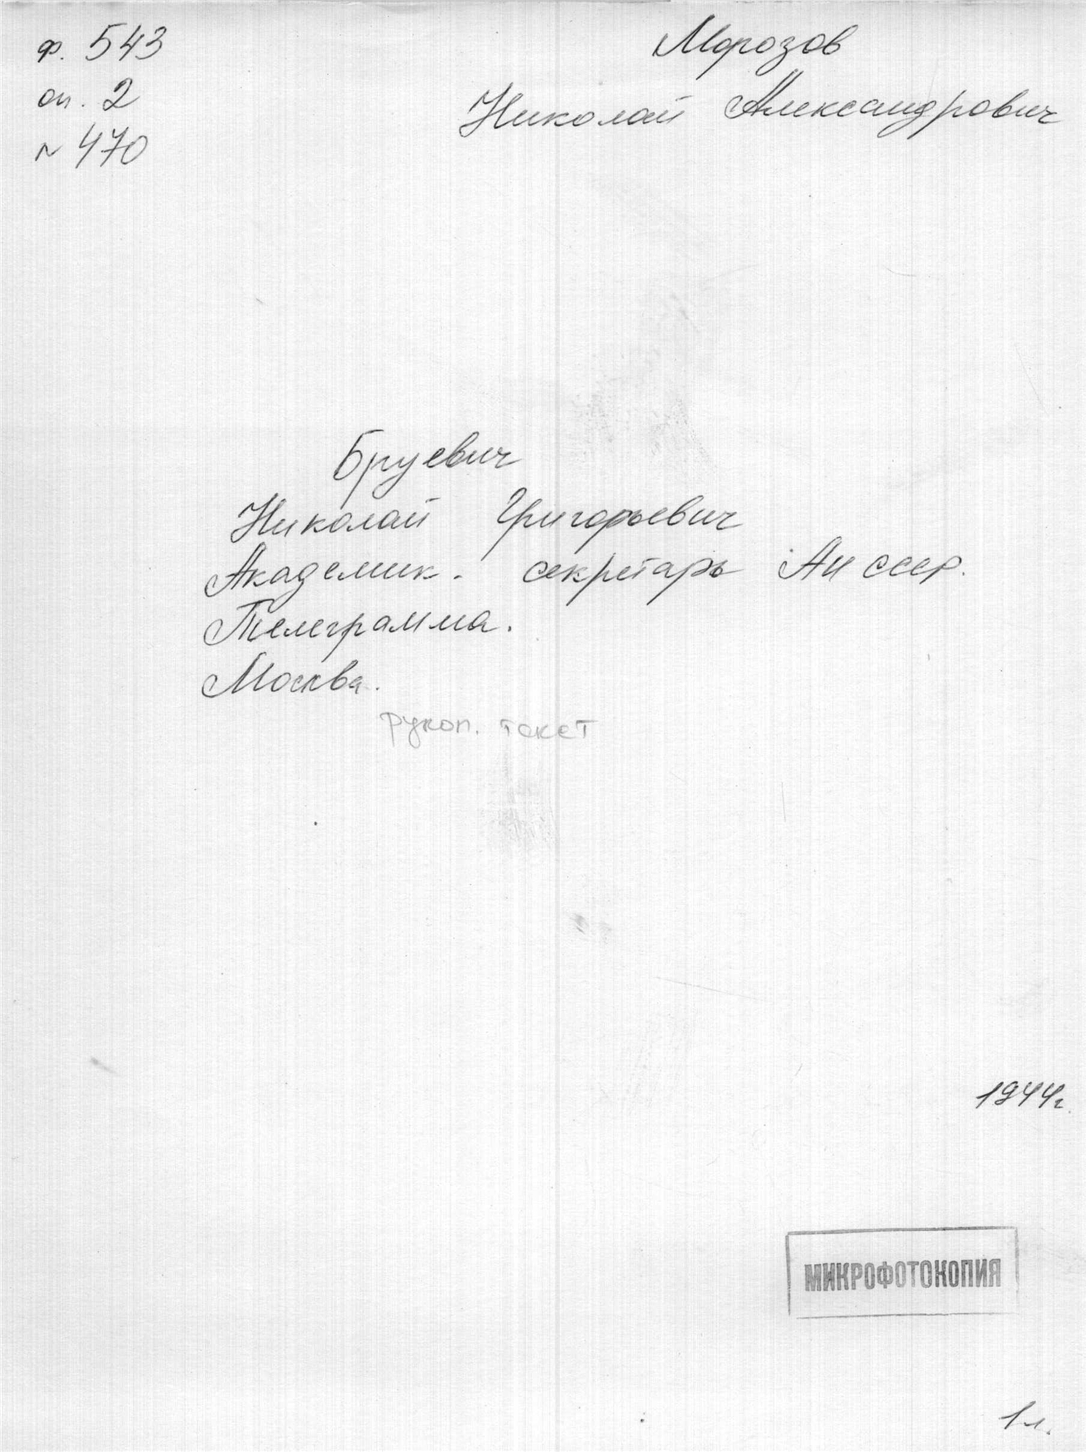 ф. 543
оп. 2
№ 470
Морозов
Николай Александрович
Бруевич
Николай Григорьевич
Академик - секретарь АН СССР.
Телеграмма.
Москва.
рукоп. текст
1944г.
МИКРОФОТОКОПИЯ
1 л.